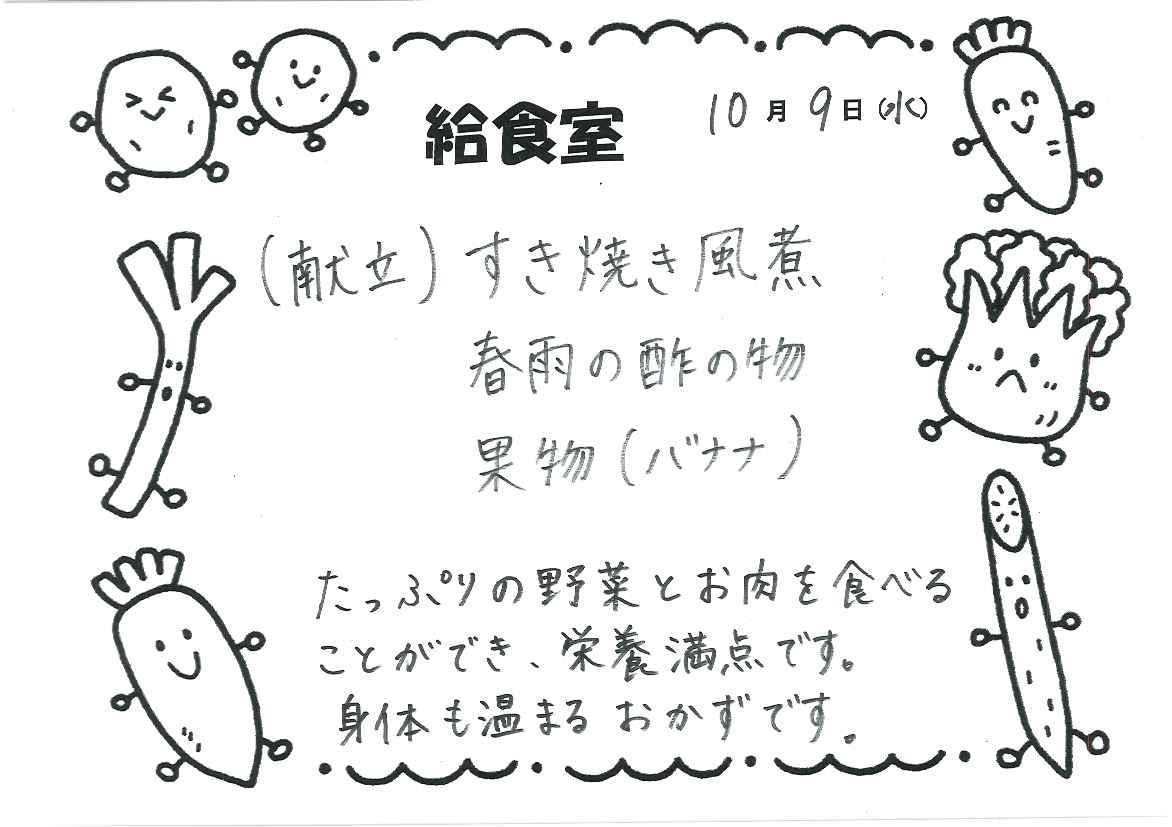 給食室
10月9日(水)
(献立)すき焼き風煮
春雨の酢の物
果物(バナナ)
たっぷりの野菜とお肉を食べる
ことができ、栄養満点です。
身体も温まるおかずです。